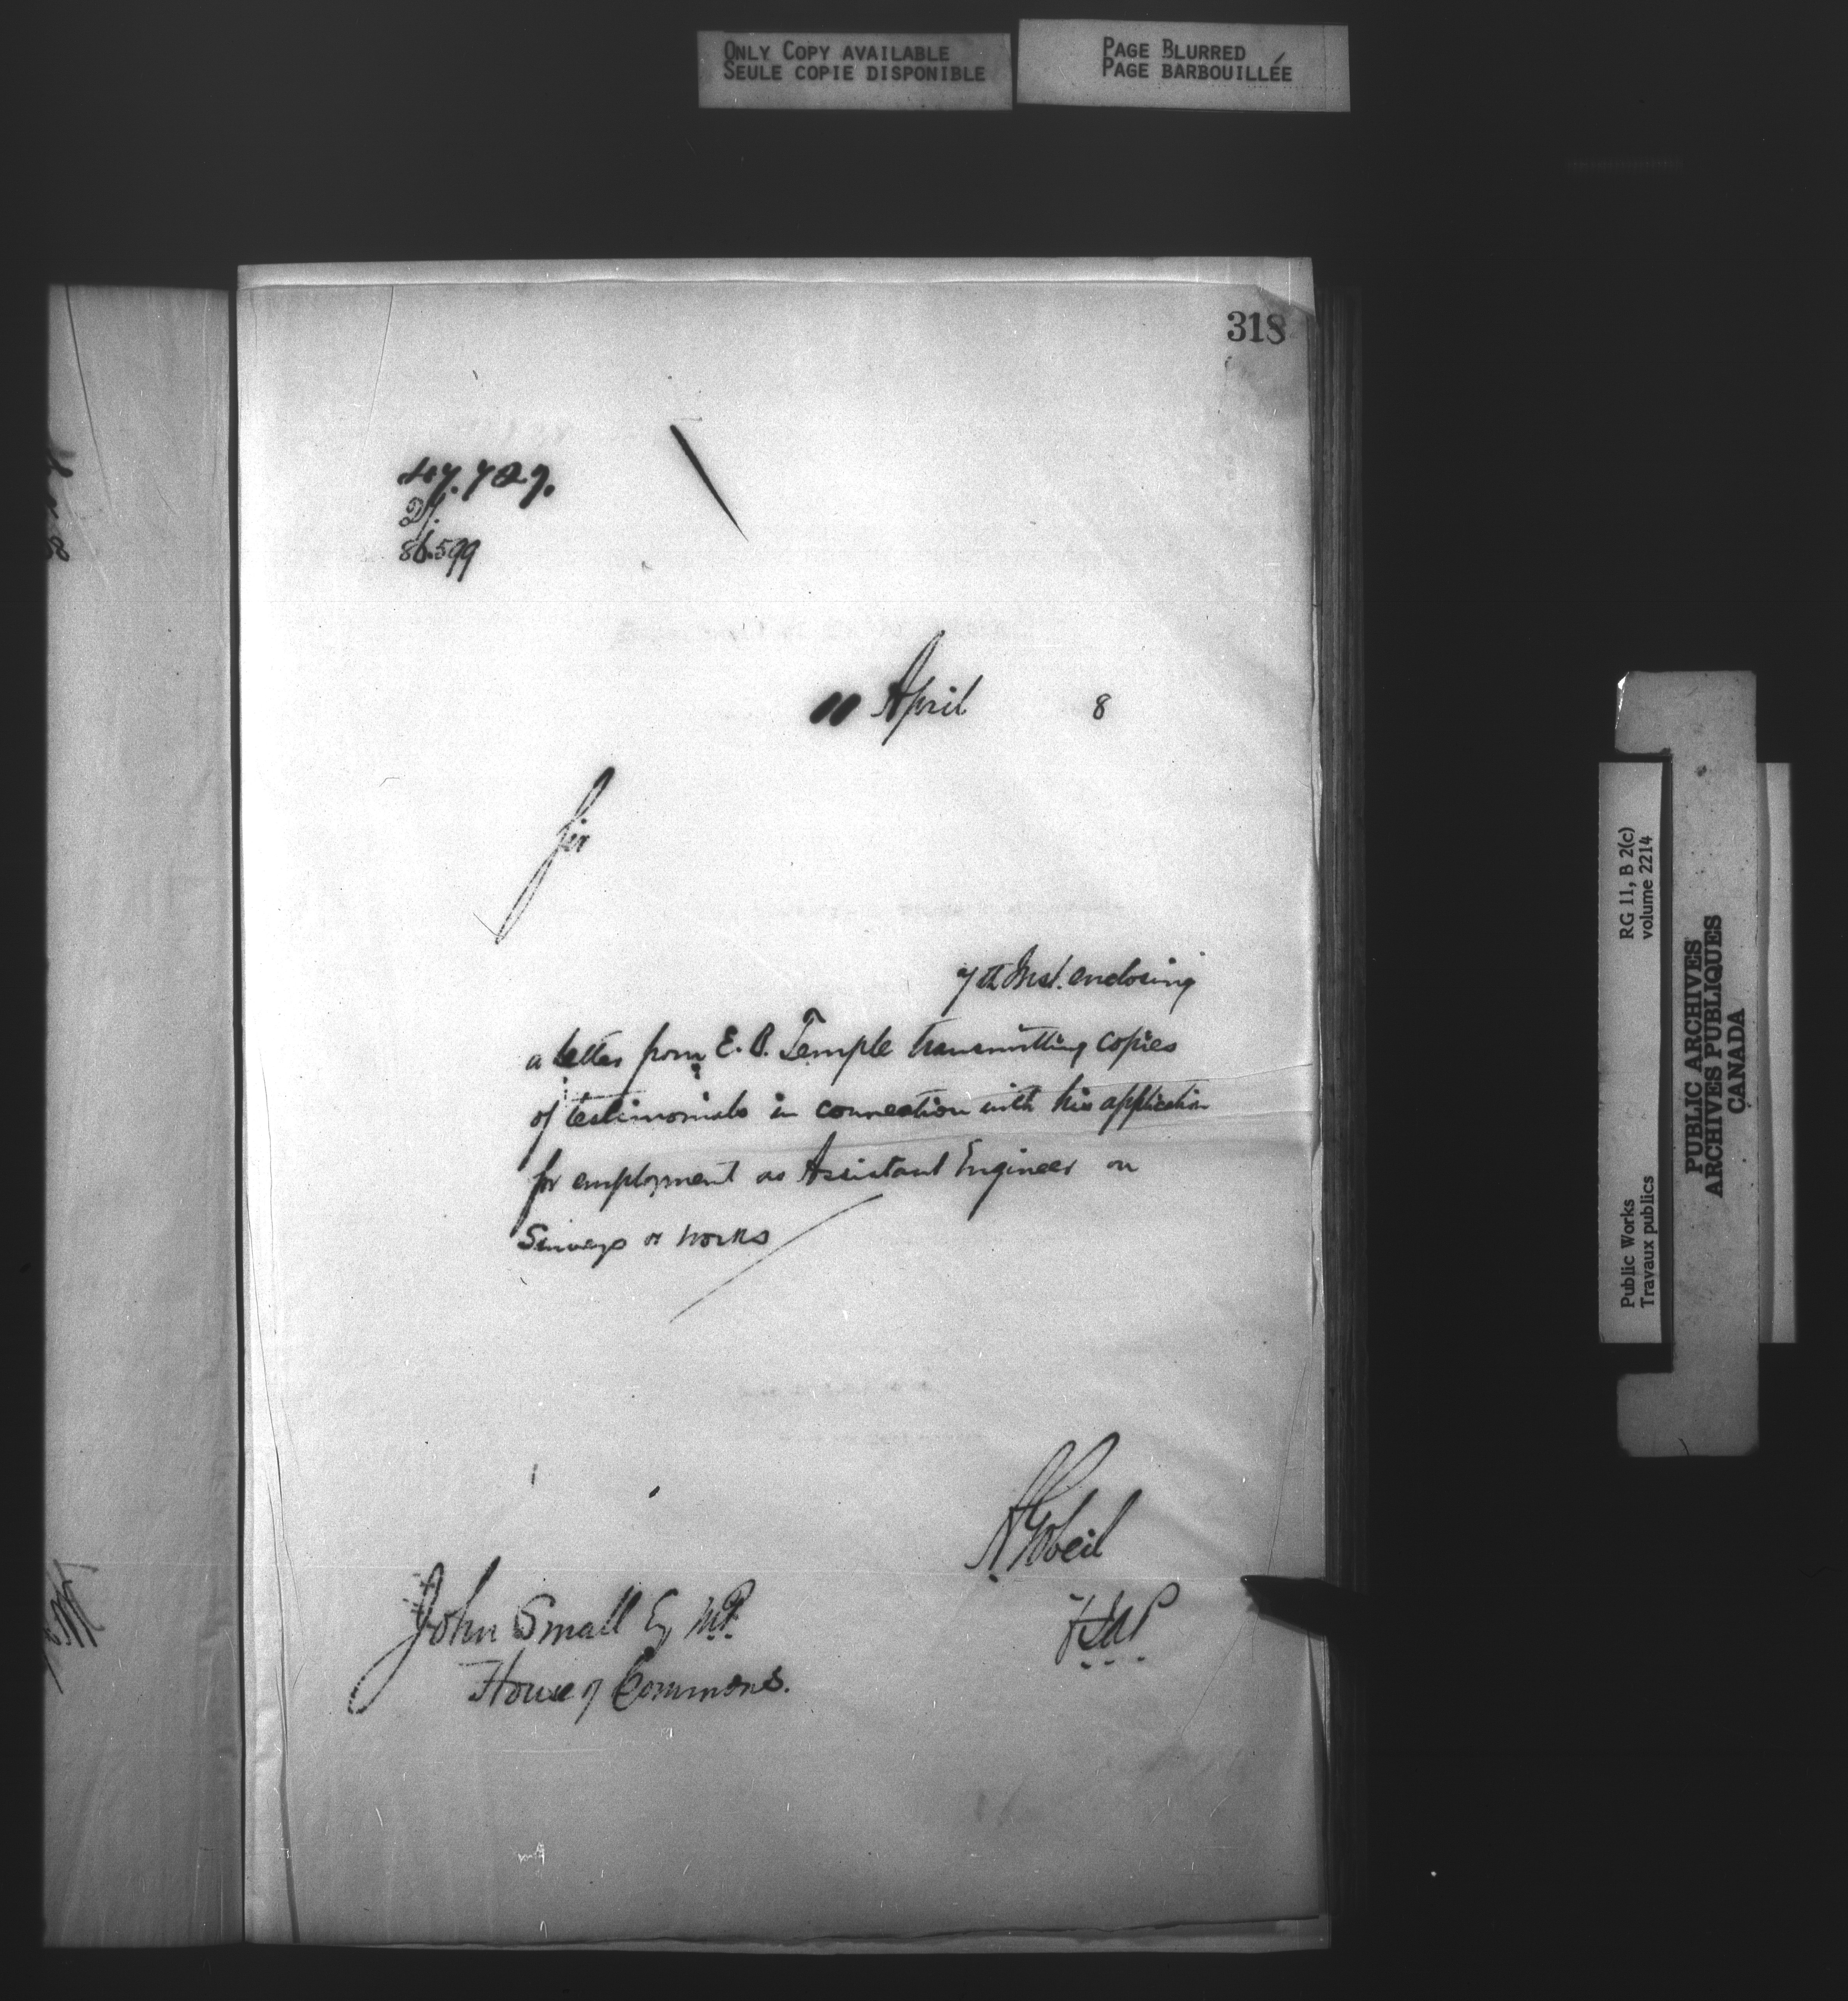 ONLY COPY AVAILABLE
SEULE COPIE DISPONIBLE
PAGE BLURRED
PAGE BARBOUILLÉE
318
47.727.
86.599
11 April 8
Sir
7th Inst. enclosing
a letter from E. B. Temple transmitting copies
of testimonials in connection with his application
for employment as Assistant Engineer on
Surveys or works
A Gobeil
John Small Esq M.P.
House of Commons.
RG 11, B 2(c)
volume 2214
Public Works
Travaux publics
PUBLIC ARCHIVES
ARCHIVES PUBLIQUES
CANADA